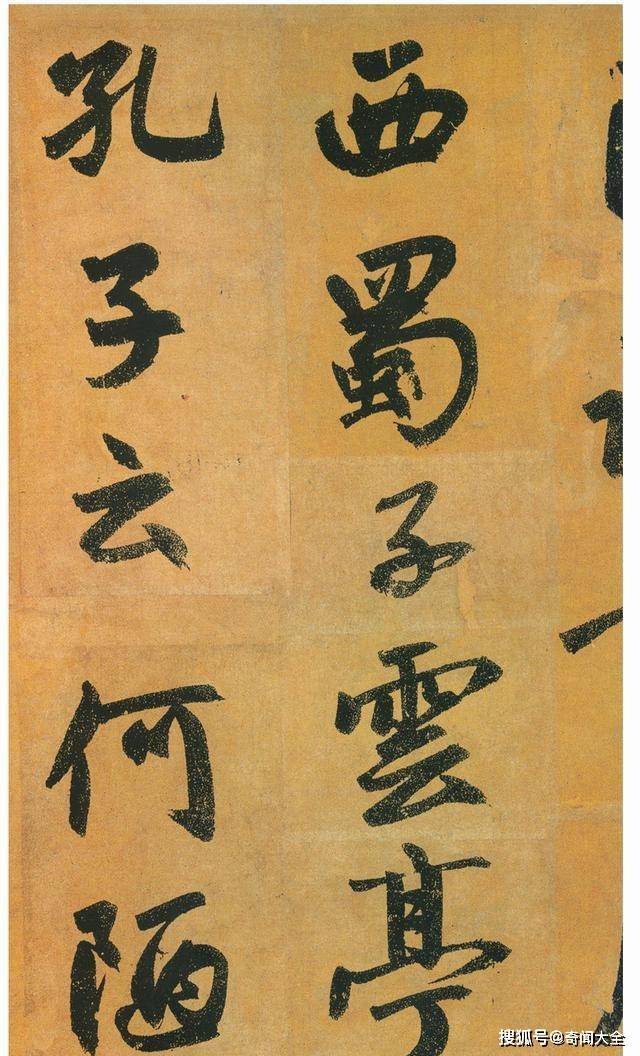 西蜀子雲亭
孔子云何陋
搜狐号@奇闻大全